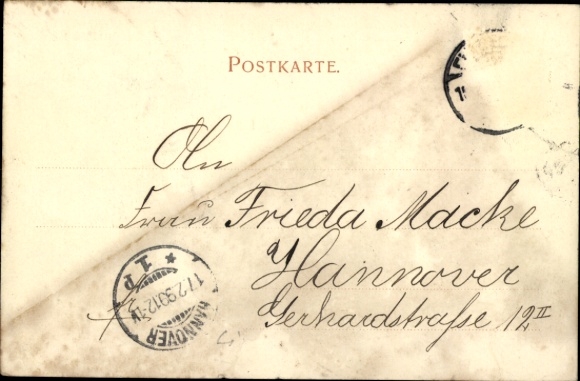 POSTKARTE.
An
Frau Frieda Macke
Hannover
Gerhardstraße 12 II
HANNOVER
1 P